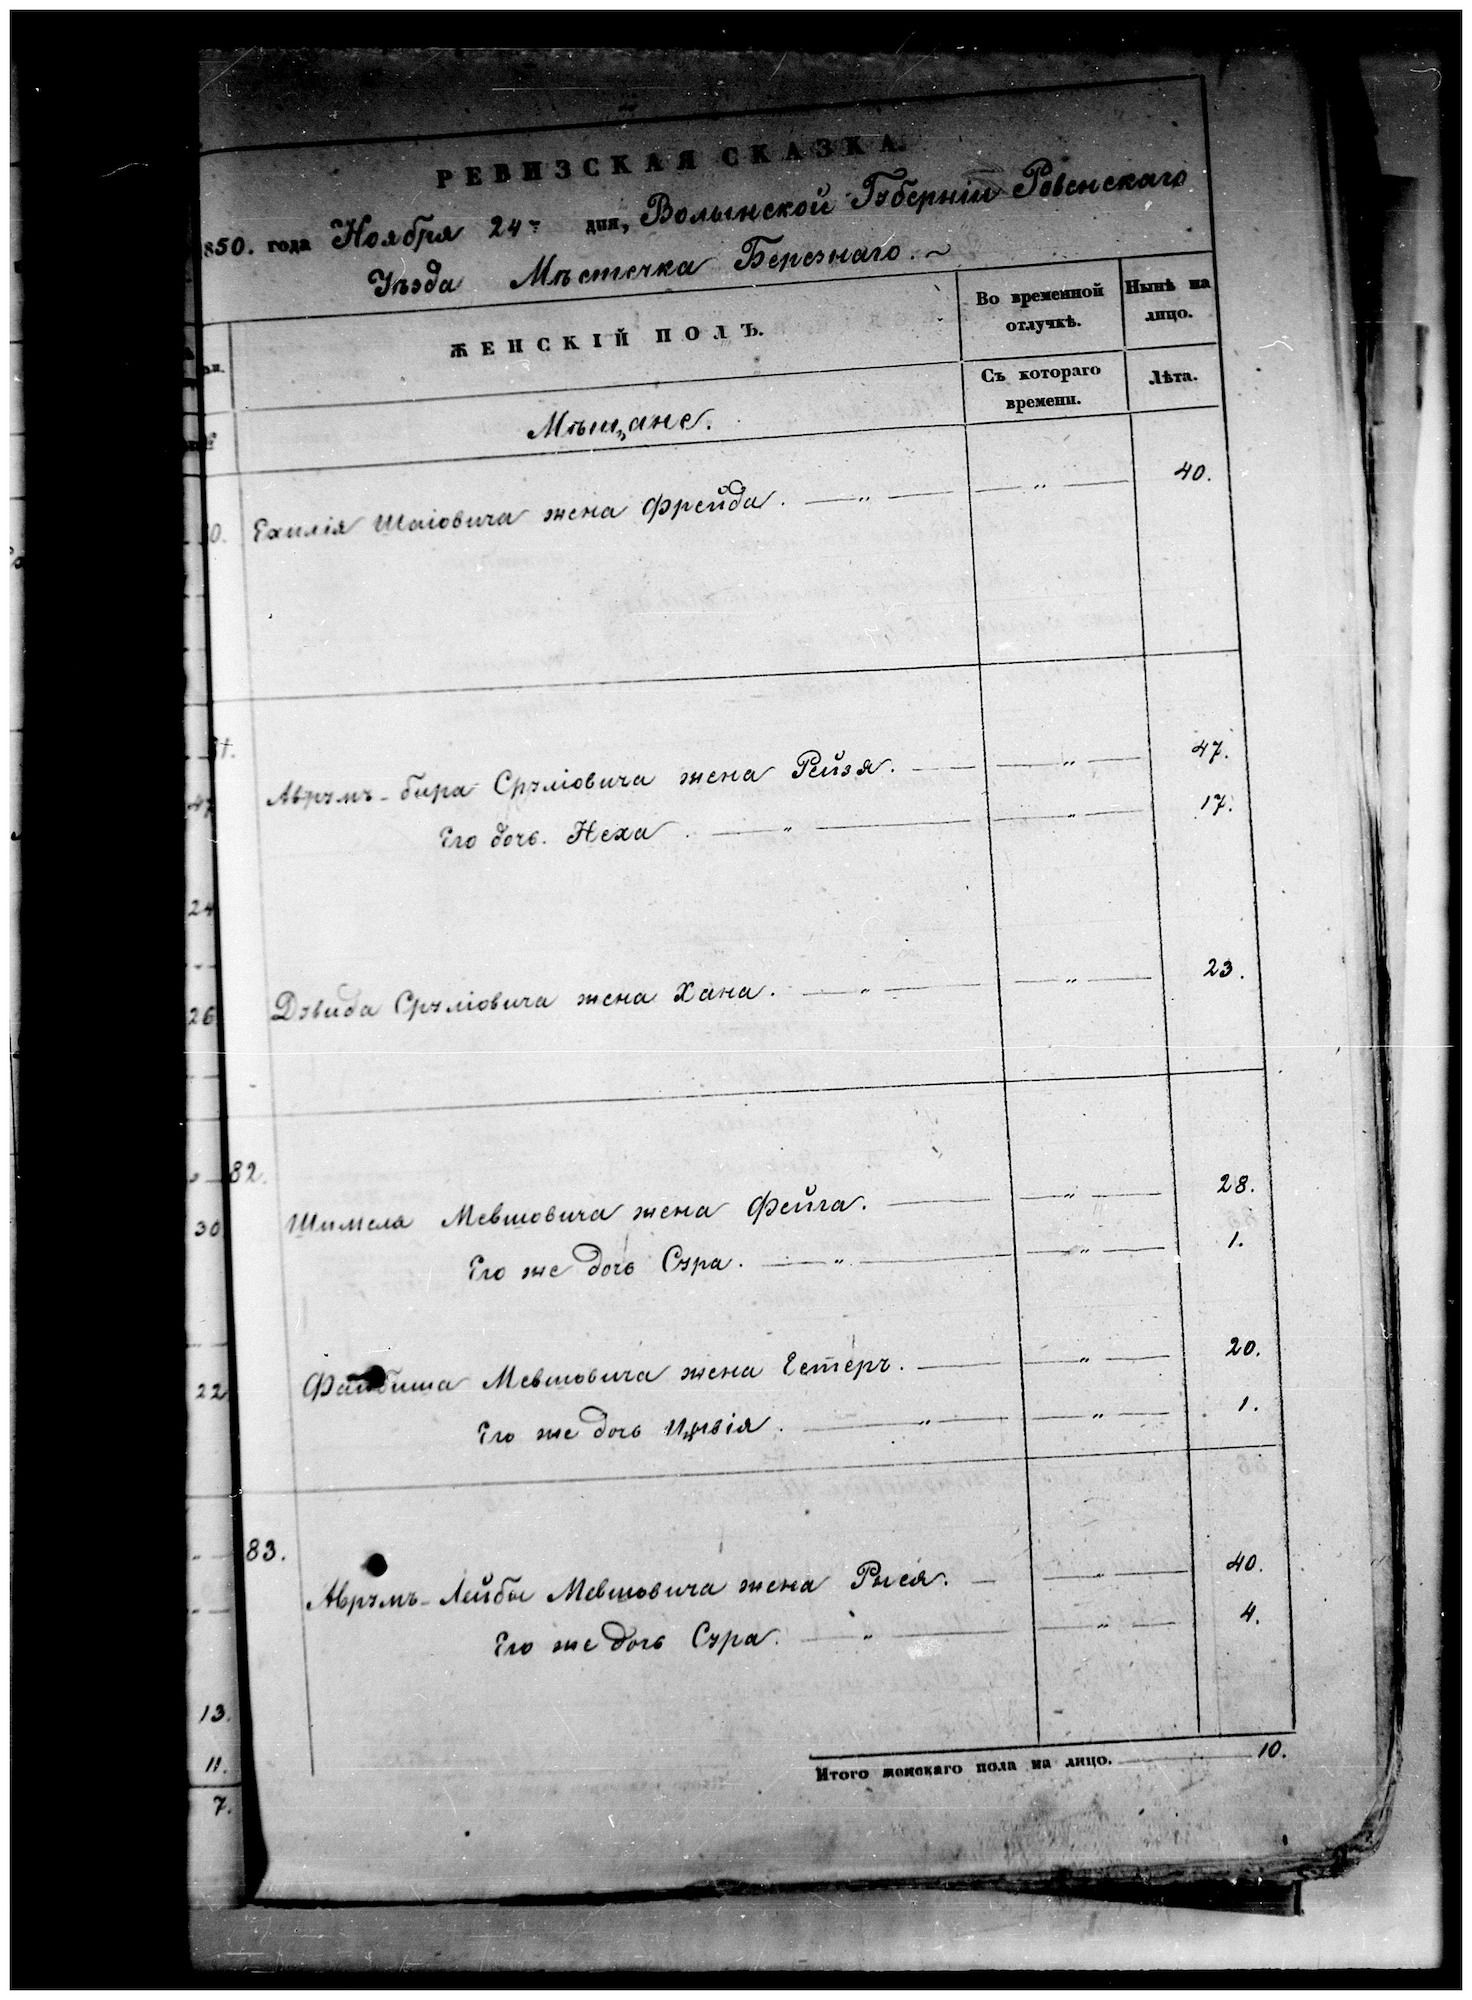 РЕВИЗСКАЯ СКАЗКА.
850. года Ноября 24 дня, Волынской Губерніи Ровенскаго
Уѣзда Мѣстечка Березнаго.
ЖЕНСКІЙ ПОЛЪ.
Во временной отлучкѣ.
Нынѣ на лицо.
Съ котораго времени.
Лѣта.
Мѣщане.
0. Ехилія Шаіовича жена Фрейда. — „ — — „ — 40.
Аврумъ-бира Сруліовича жена Рейзя. — — „ — 47.
Его дочь Неха. — „ — — „ — 17.
Дувида Сруліовича жена Хана. — „ — — „ — 23.
82.
Шимеля Мевшовича жена Фейга. — — „ — 28.
Его же дочь Сура. — „ — — „ — 1.
Файбиша Мевшовича жена Естеръ. — — „ — 20.
Его же дочь Цывія. — „ — — „ — 1.
83.
Аврумъ-Лейбы Мевшовича жена Рыся. — — „ — 40.
Его же дочь Сура. — „ — — „ — 4.
Итого женскаго пола на лицо. — 10.
47
24
26
30
22
13.
11.
7.